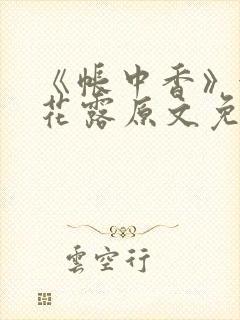 《帐中香》
花露原文免
雲空行